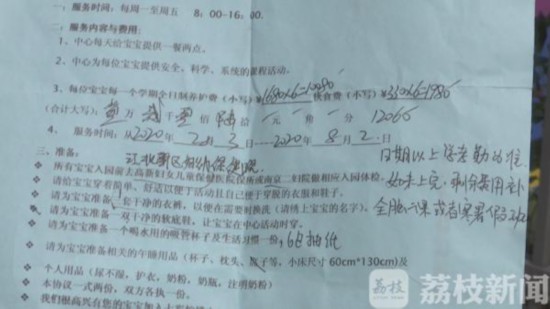 一：服务时间：每周一至周五 8：00-16：00.
二：服务内容与费用：
1、中心每天给宝宝提供一餐两点。
2、中心为每位宝宝提供安全，科学，系统的课程活动。
3、每位宝宝每一个学期全日制养护费（小写）¥1680×6=10080 伙食费（小写）¥330×6=1980
（合计大写）：壹万 贰千 佰 陆拾 元 角 分 12060
4. 服务时间：从2020年 2月 3日——2020年 8月 2日
三、准备：
江北新区妇幼保
日期以上
所有宝宝入园前去高新妇女儿童保健医院或南京二妇院做相应入园体检。
如未上完，剩余费用补
请给宝宝穿着简单、舒适以便于活动且自己便于穿脱的衣服和鞋子。
请为宝宝准备一套干净的衣裤，以便在需要时换洗（请绣上宝宝的名字）。
全脑课或者寒暑
请为宝宝准备一双干净的软底鞋，让宝宝在中心活动时穿。
请为宝宝准备一个喝水用的吸管杯子及生活习惯一份， 6包抽纸
请为宝宝准备相关的午睡用品（杯子，枕头，毯子等，小床尺寸 60cm*130cm)及
个人用品（尿不湿，护衣，奶粉，奶瓶，注明奶粉）
本协议一式两份，双方各执一份。
我们很高兴有您的宝宝加入
荔枝
荔枝新闻